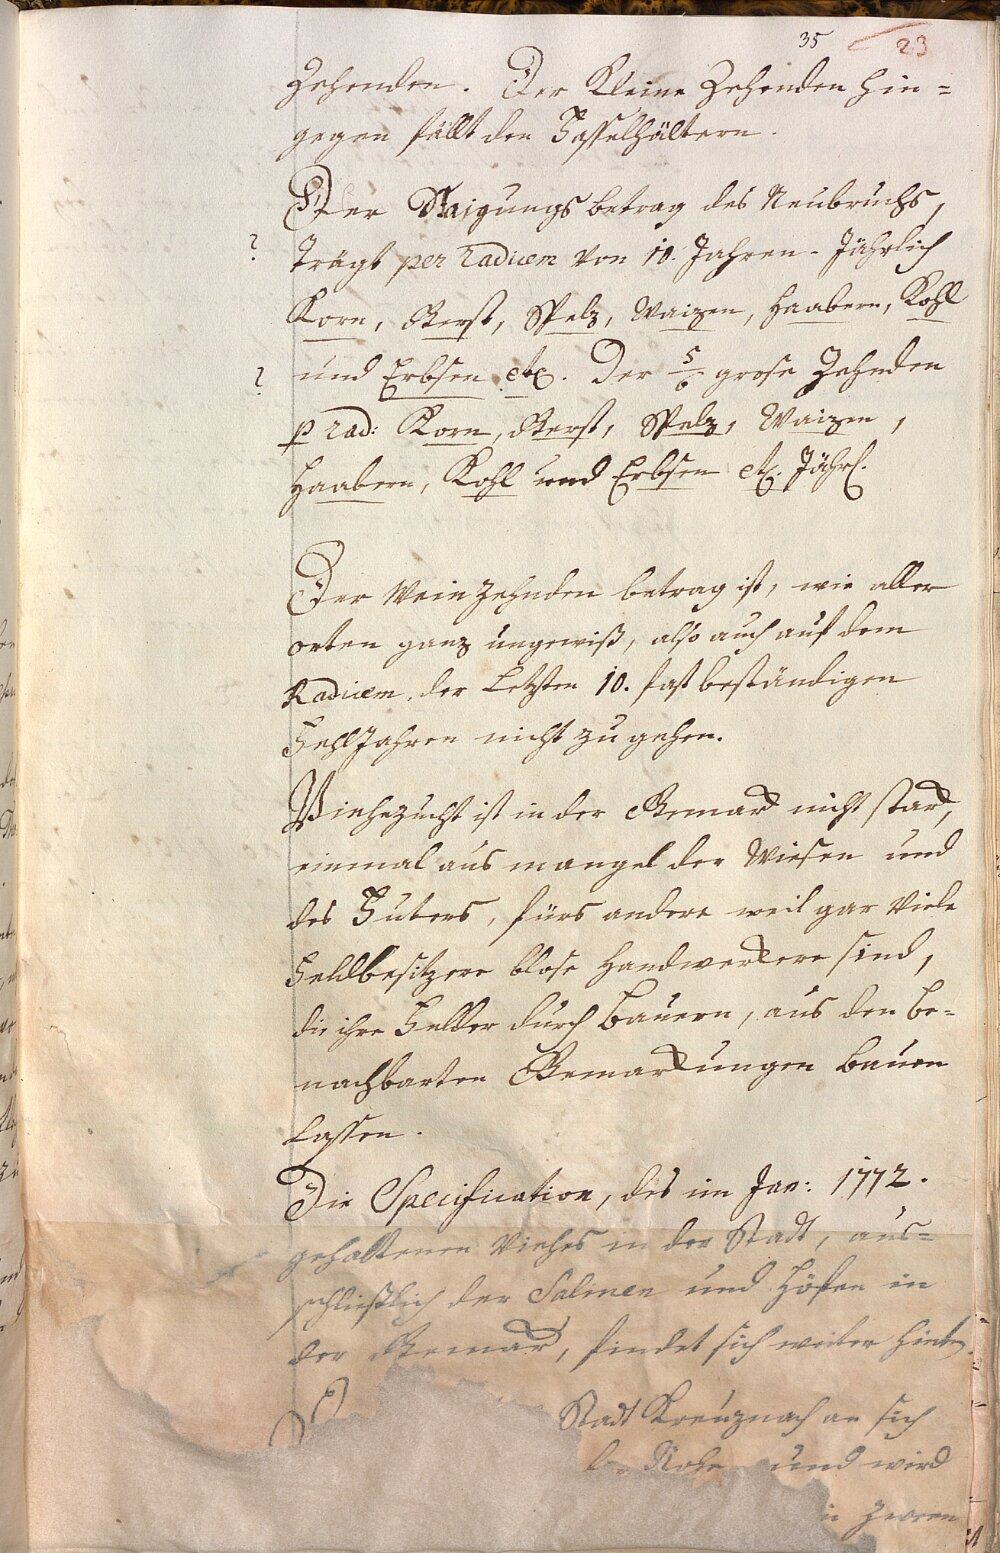 35 23
Zehenden. Der Kleine Zehenden hin=
gegen fällt den Fasselhältern.
Der Staigungs betrag des Neubruchs,
? trägt per radicem von 10. Jahren. Jährlich
Korn, Gerst, Spelz, Waizen, Haabern, Kohl
? und Erbsen etc. Der 5/6 grose Zehnden
p rad: Korn, Gerst, Spelz, Waizen,
Haabern, Kohl und Erbsen etc. Jährl.
Der Wein Zehnden betrag ist, wie aller
orten ganz ungewiß, also auch auf dem
Radicem der Letzten 10. fast beständigen
FehlJahren nicht zu gehen.
Viehezucht ist in der Gemarck nicht starck,
einmal aus mangel der Wiesen und
des Futers, fürs andere weil gar Viele
Feldbesitzere blose Handwerckere sind,
die ihre Felder durch Bauern, aus den be=
nachbarten Gemarckungen bauen
Lassen.
Die Specification, des im Jan: 1772.
gehaltenen Viehes in der Stadt, aus=
schließlich der Salinen und Höfen in
der Gemarck, findet sich weiter hinten.
D Stadt Kreuznach an sich
Nohe und wird
in zween